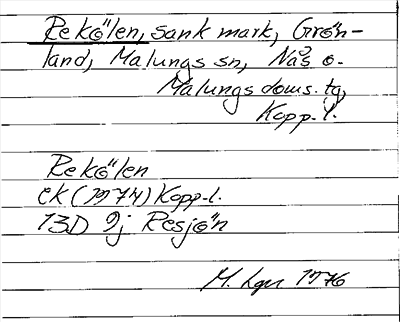 Rekölen, sank mark, Grön-
land, Malungs sn, Nås o.
Malungs doms. tg,
Kopp. l.
Rekölen
ek (1974) Kopp-l.
13D 9j Resjön
M. Lgn 1976